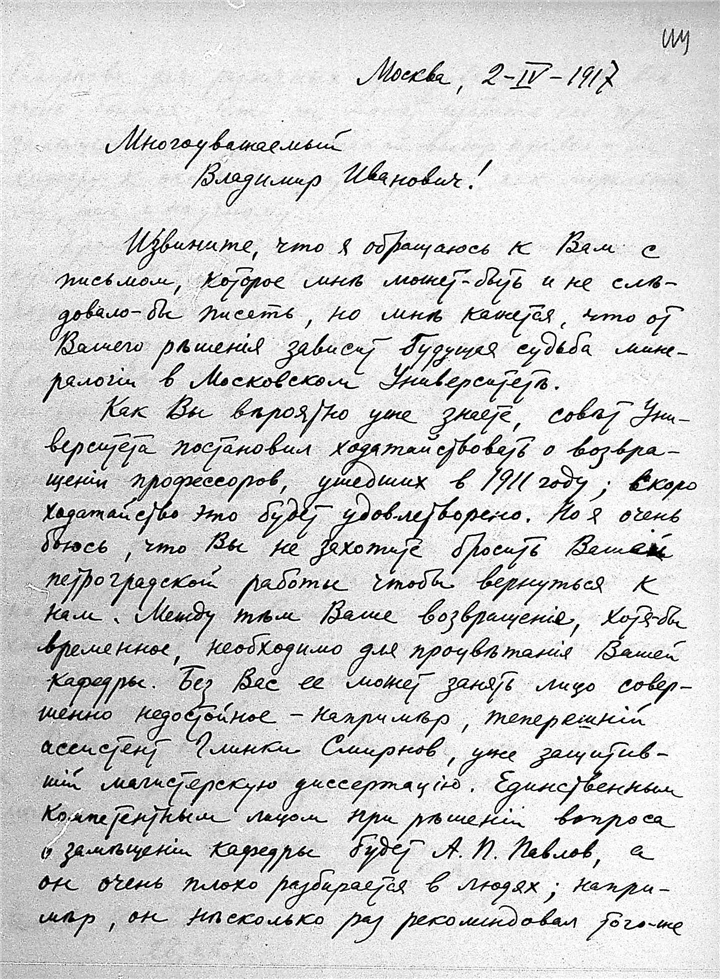 Москва, 2-IV-1917
Многоуважаемый
Владимир Иванович!
Извините, что я обращаюсь к Вам с
письмом, которое мнѣ может-быть и не слѣ-
довало-бы писать, но мнѣ кажется, что от
Вашего рѣшенія зависит будущая судьба мине-
ралогіи в Московском Университетѣ.
Как Вы вѣроятно уже знаете, совѣт Уни-
верситета постановил ходатайствовать о возвра-
щеніи профессоров, ушедших в 1911 году; скоро
ходатайство это будет удовлетворено. Но я очень
боюсь, что Вы не захотите бросить Вашей
петроградской работы чтобы вернуться к
нам. Между тѣм Ваше возвращеніе, хотя-бы
временное, необходимо для процвѣтанія Вашей
кафедры. Без Вас ее может занять лицо совер-
шенно недостойное – напримѣр, теперешній
ассистент Глинки Смирнов, уже защитив-
шій магистерскую диссертацію. Единственным
компетентным лицом при рѣшеніи вопроса
о замѣщеніи кафедры будет А. П. Павлов, а
он очень плохо разбирается в людях; напри-
мѣр, он нѣсколько раз рекомендовал того-же